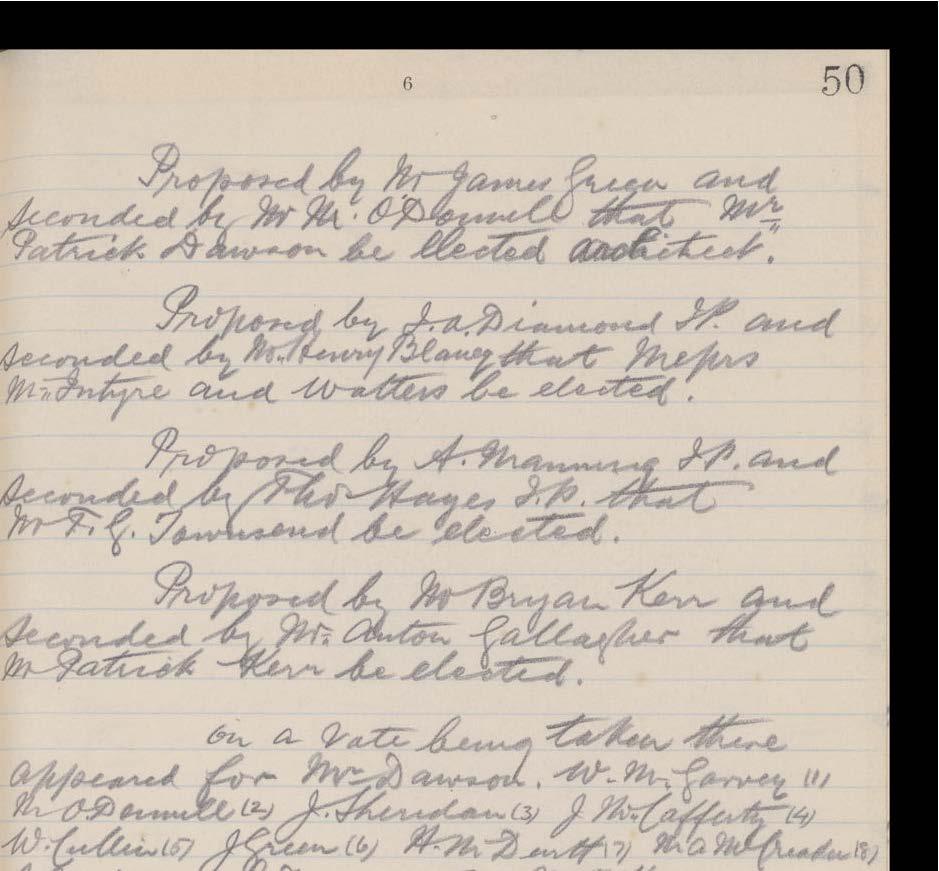 6
50
Proposed by Mr James Green and
seconded by Mr M. O'Donnell that Mr
Patrick Dawson be elected architect.
Proposed by J.A. Diamond J.P. and
seconded by Mr. Henry Blaney that Messrs
McIntyre and Watters be elected.
Proposed by A. Manning J.P. and
seconded by Thos Hayes J.P. that
Mr F.G. Townsend be elected.
Proposed by Mr Bryan Kerr and
seconded by Mr. Anton Gallagher that
Mr Patrick Kerr be elected.
On a vote being taken there
appeared for Mr Dawson. W. M. Garvey (1)
M O.Donnell (2) J. Sheridan (3) J McCafferty (4)
W. Cullin (5) J Green (6) H. (7) (8)